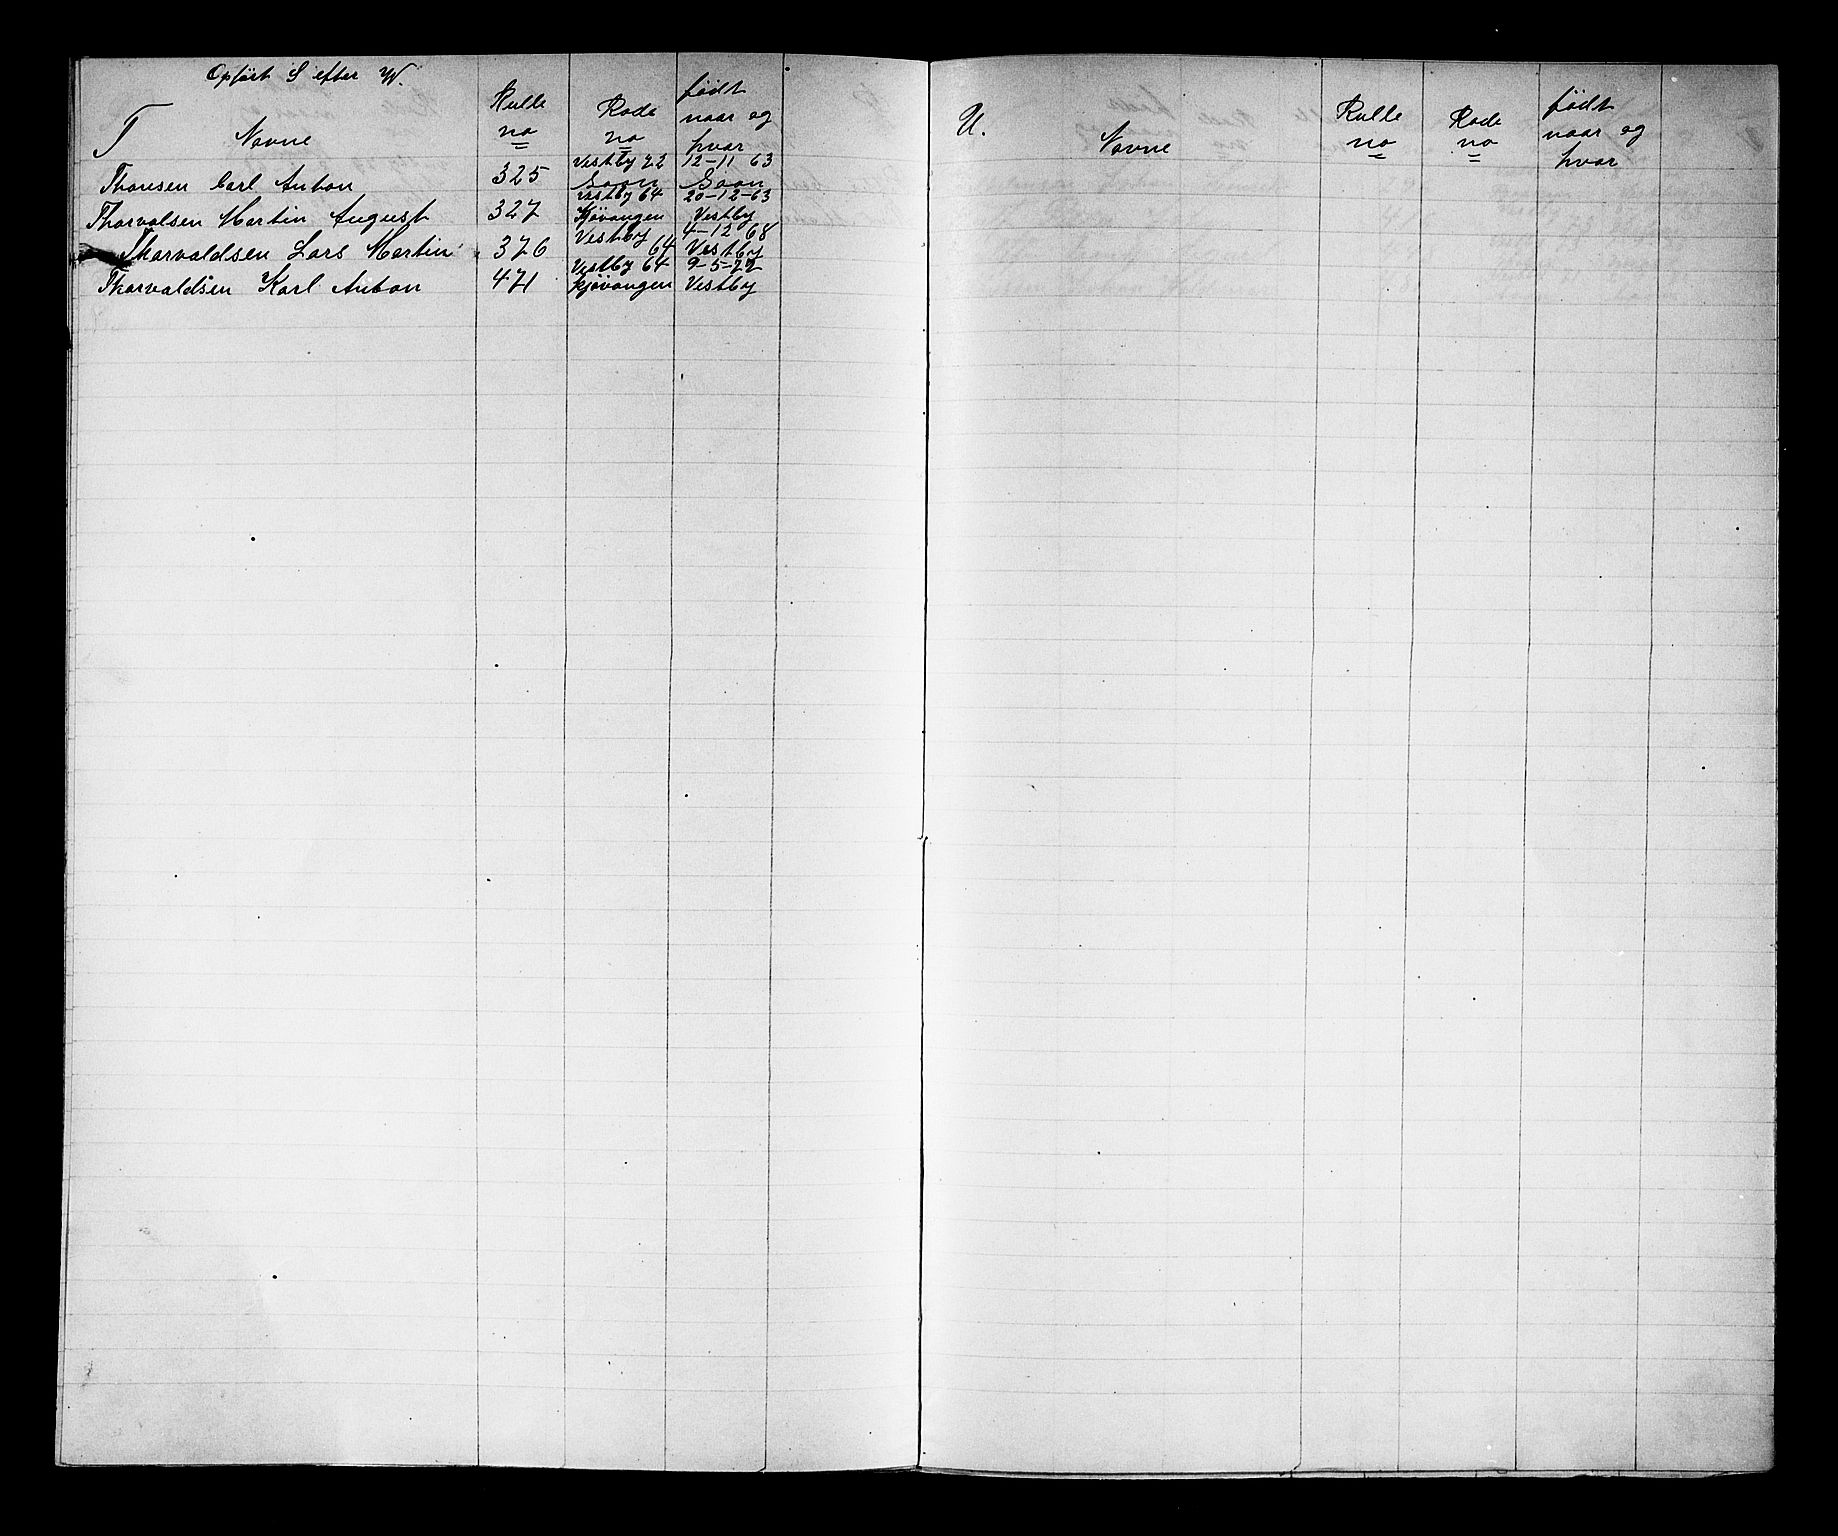 Opført S efter W.
T Navne Rulle no Rode no født naar og hvor
Thonsen Carl Anton 325 Vestby 22 Soon 12-11 63 Soon
Thorvalsen Martin August 327 Vestby 64 Kjøvangen 20-12-63 Vestby
Thorvaldsen Lars Martin 376 Vestby 64 4-12 68 Vestby
Thorvaldsen Karl Anton 471 Vestby 64 Kjøvangen 9-5-72 Vestby
U. Navne Rulle no Rode no født naar og hvor